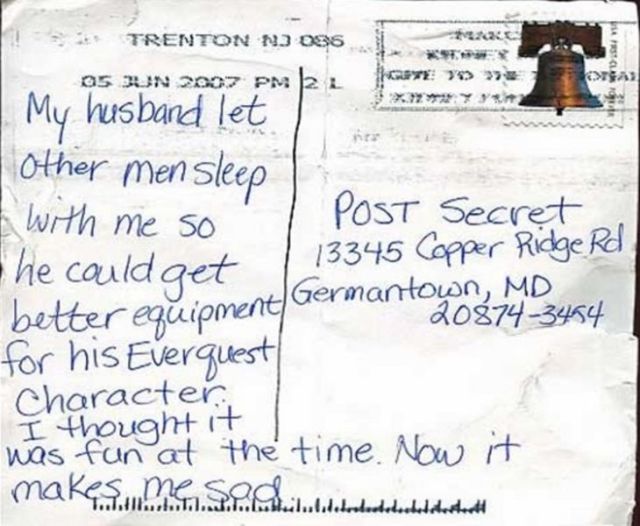 TRENTON NJ 086
05 JUN 2007 PM 2 L
My husband let
other men sleep
with me so
he could get
better equipment
for his Everquest
Character.
I thought it
was fun at the time. Now it
makes me sad.
GIVE TO THE
POST Secret
13345 Copper Ridge Rd
Germantown, MD
20874-3454